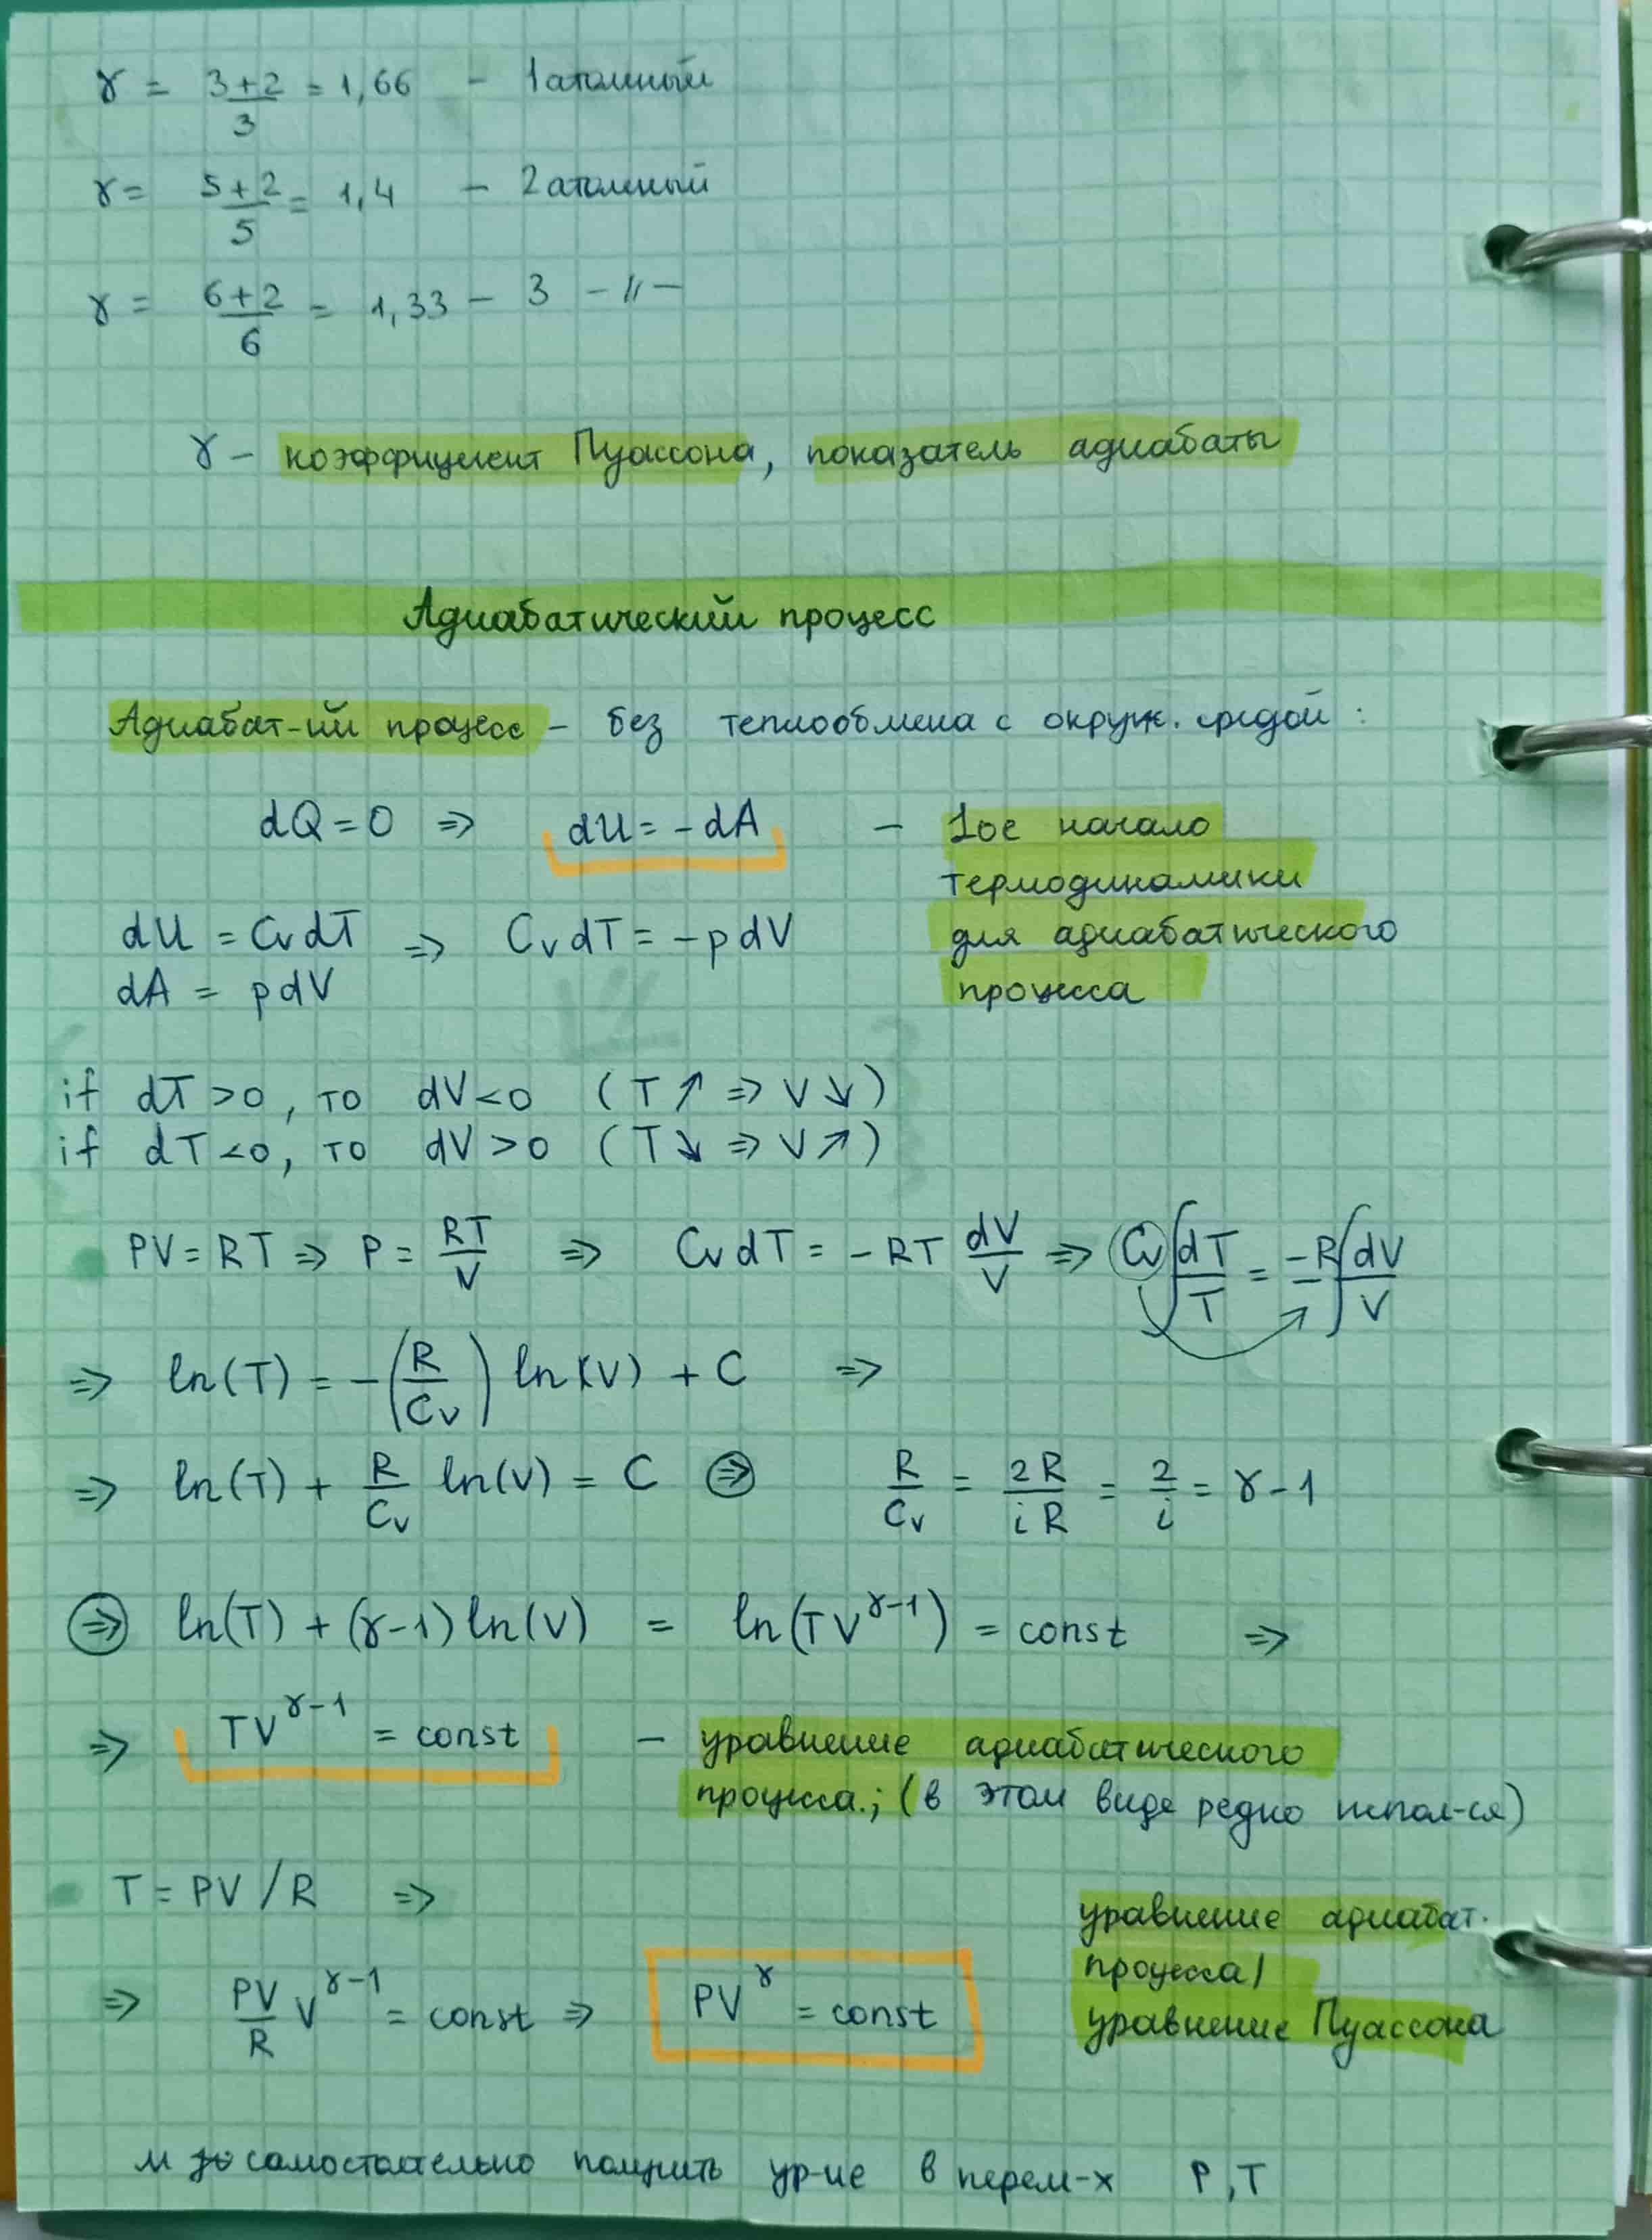 γ = (3+2)/3 = 1,66 - 1атомный
γ = (5+2)/5 = 1,4 - 2атомный
γ = (6+2)/6 = 1,33 - 3 -〃-
γ - коэффициент Пуассона, показатель адиабаты
Адиабатический процесс
Адиабат-ий процесс - без теплообмена с окруж. средой :
dQ = 0 => dU = -dA - 1ое начало
термодинамики
для адиабатического
процесса
dU = CvdT => CvdT = -pdV
dA = pdV
if dT > 0, то dV < 0 (T↗ => V↘)
if dT < 0, то dV > 0 (T↘ => V↗)
PV = RT => P = RT/V => CvdT = -RT dV/V => Cv∫dT/T = -R∫dV/V
=> ln(T) = -(R/Cv) ln(V) + C =>
=> ln(T) + R/Cv ln(V) = C => R/Cv = 2R/iR = 2/i = γ-1
=> ln(T) + (γ-1)ln(V) = ln(TV^(γ-1)) = const =>
=> TV^(γ-1) = const - уравнение адиабатического
процесса.; (в этом виде редко испол-ся)
T = PV/R =>
=> PV/R V^(γ-1) = const => PV^γ = const
уравнение адиабат.
процесса/
уравнение Пуассона
самостоятельно получить ур-ие в перем-х P,T